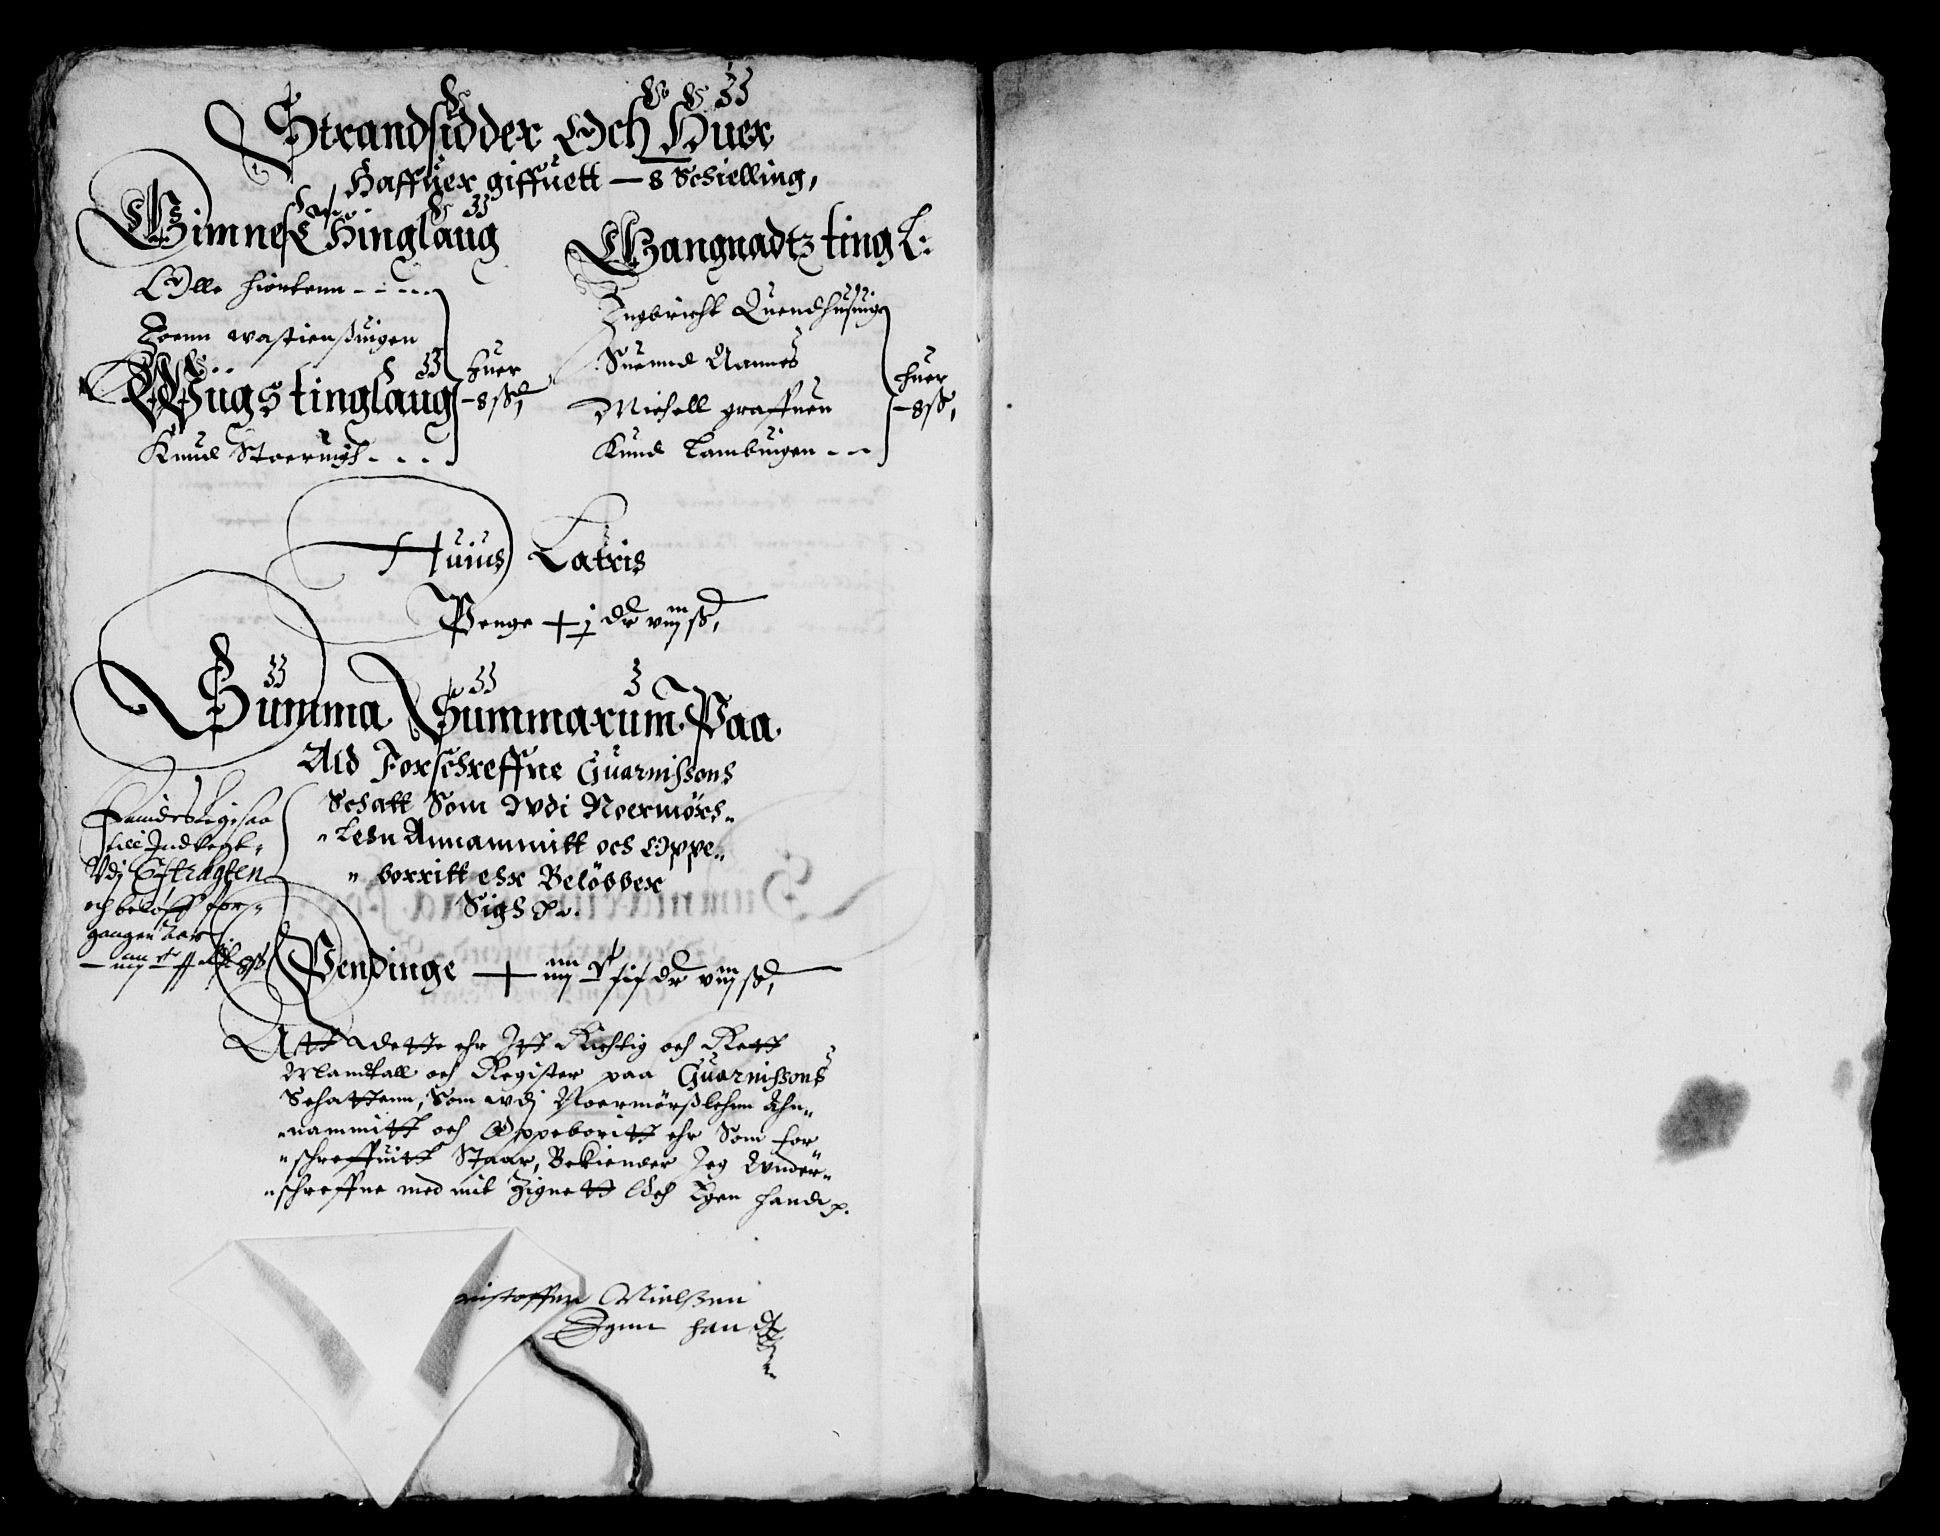 Strandsidder Och Huer
Haffuer giffuett — 8 Schielling,
Gimnes Thinglaug
Olle hiortenn - - - -
Joenn wastienßuigen
Wügs tinglaug
Knud Stoeruigh - - - -
huer
— 8 ß,
Wangnadtz ting L:
Ingbricht Quendhusuig
Suennd Nannes
Michell graffuen
Knud Lambuigen - - -
huer
— 8 ß,
Huius Lateris
Penge + j dr viij ß,
Summa Summarum Paa
Ald Forschreffne Guarnißons
Schatt Som Wdi Noermørs-
-Lehn Annammitt och Oppe-
- borritt ehr Beløbber
Sigh
Findes ligesaa
till Indtegt
Vdj
och beløff for-
gangen
Pendinge +
Att dette ehr Itt Richtig och Rett
Mandtall och Register paa Guarnißons
Schattenn, Som wdj Noermørßlehnn Ahn-
-nammitt och Oppeboritt ehr Som for
-schreffuitt Staar, Bekiender Jeg Vnder-
-schreffne med mit Zignett Och Egen handt
ristoffer Nielßen
Egen handt